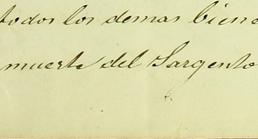 todos los demas biene
muerte del Sargento